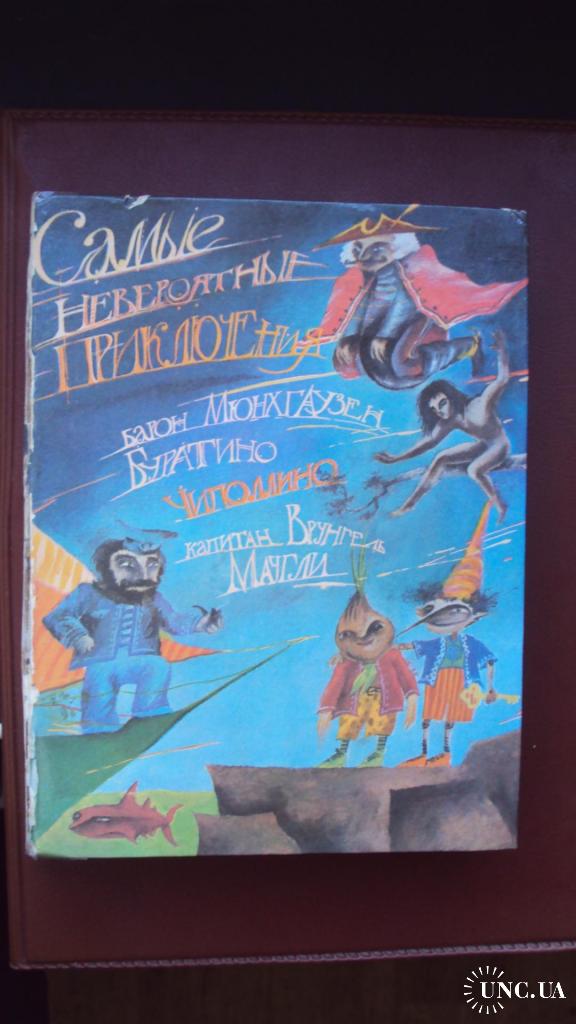 Самые
невероятные
приключения
барон Мюнхгаузен
Буратино
Чиполлино
капитан Врунгель
Маугли
UNC.UA